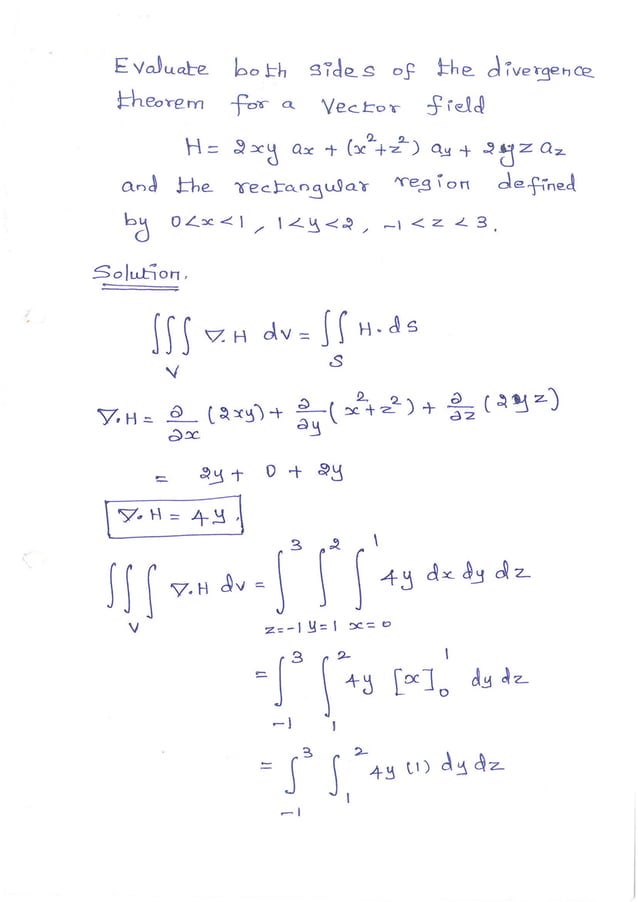 Evaluate both sides of the divergence
theorem for a vector field
H = 2xy ax + (x²+z²) ay + 2yz az
and the rectangular region defined
by 0<x<1, 1<y<2, -1<z<3.
Solution.
∭_V ∇.H dv = ∬_S H.ds
∇.H = ∂/∂x (2xy) + ∂/∂y (x²+z²) + ∂/∂z (2yz)
= 2y + 0 + 2y
∇.H = 4y.
∭_V ∇.H dv = ∫_{z=-1}^{3} ∫_{y=1}^{2} ∫_{x=0}^{1} 4y dx dy dz
= ∫_{-1}^{3} ∫_{1}^{2} 4y [x]_{0}^{1} dy dz
= ∫_{-1}^{3} ∫_{1}^{2} 4y (1) dy dz